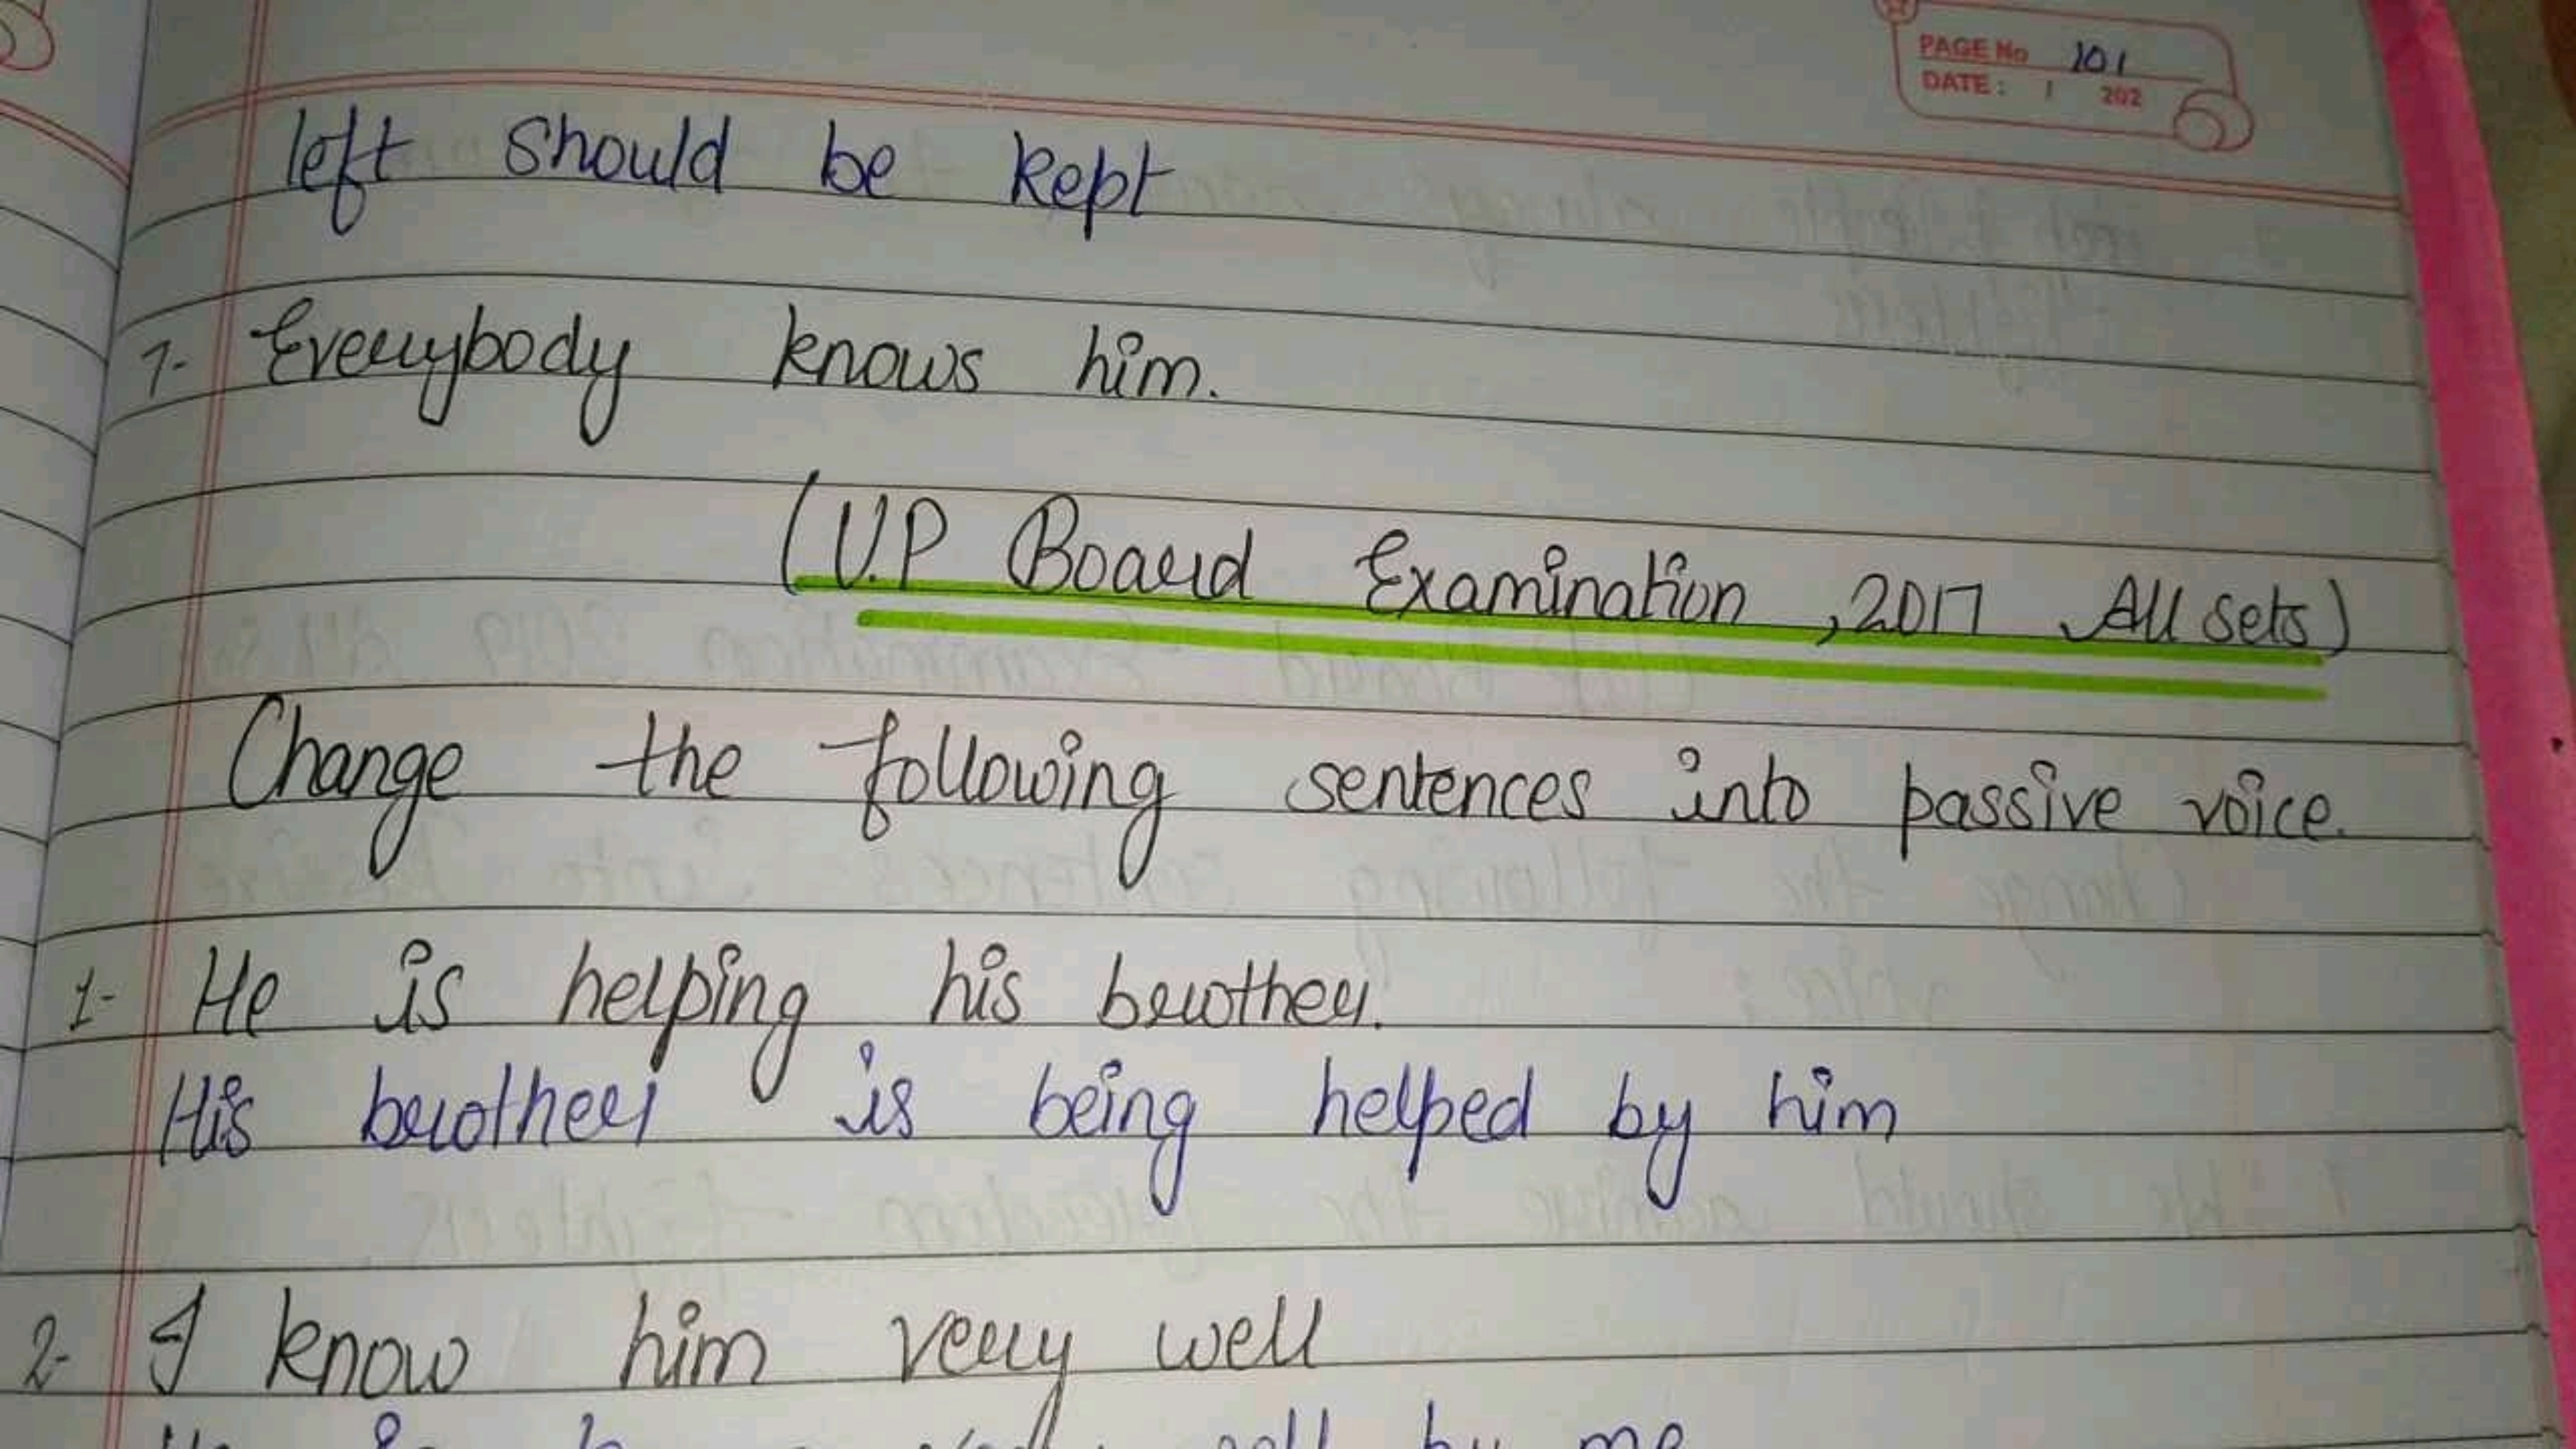 PAGE No 101
DATE: / 202
left should be kept
7- Everybody knows him.
(U.P Board Examination ,2017 All sets)
Change the following sentences into passive voice.
1- He is helping his brother.
His brother is being helped by him
2- I know him very well
by me